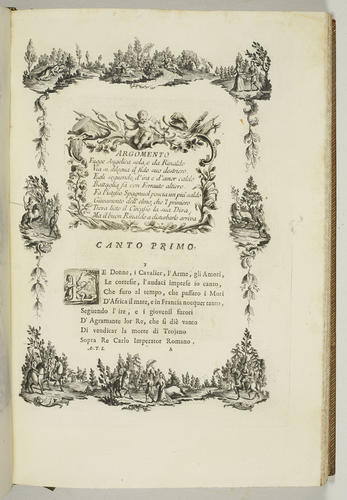 ARGOMENTO
Fugge Angelica sola, e da Rinaldo
Via si dilegua il fido suo destriero.
Egli seguendo, d'ira e d'amor caldo
Battaglia fà con Ferrautе altiero.
Fà l'istesso Spagnuol poscia un più saldo
Giuramento dell'elmo, che 'l primiero
Trova lieto il Circasso la sua Diva,
Ma il buon Rinaldo a disturbarlo arriva.
CANTO PRIMO.
I
LE Donne, i Cavalier, l'Arme, gli Amori,
Le cortesie, l'audaci imprese io canto,
Che furo al tempo, che passaro i Mori
D'Africa il mare, e in Francia nocquer tanto,
Seguendo l'ire, e i giovenil furori
D'Agramante lor Re, che si diè vanto
Di vendicar la morte di Trojano
Sopra Re Carlo Imperator Romano.
A.T.I. A